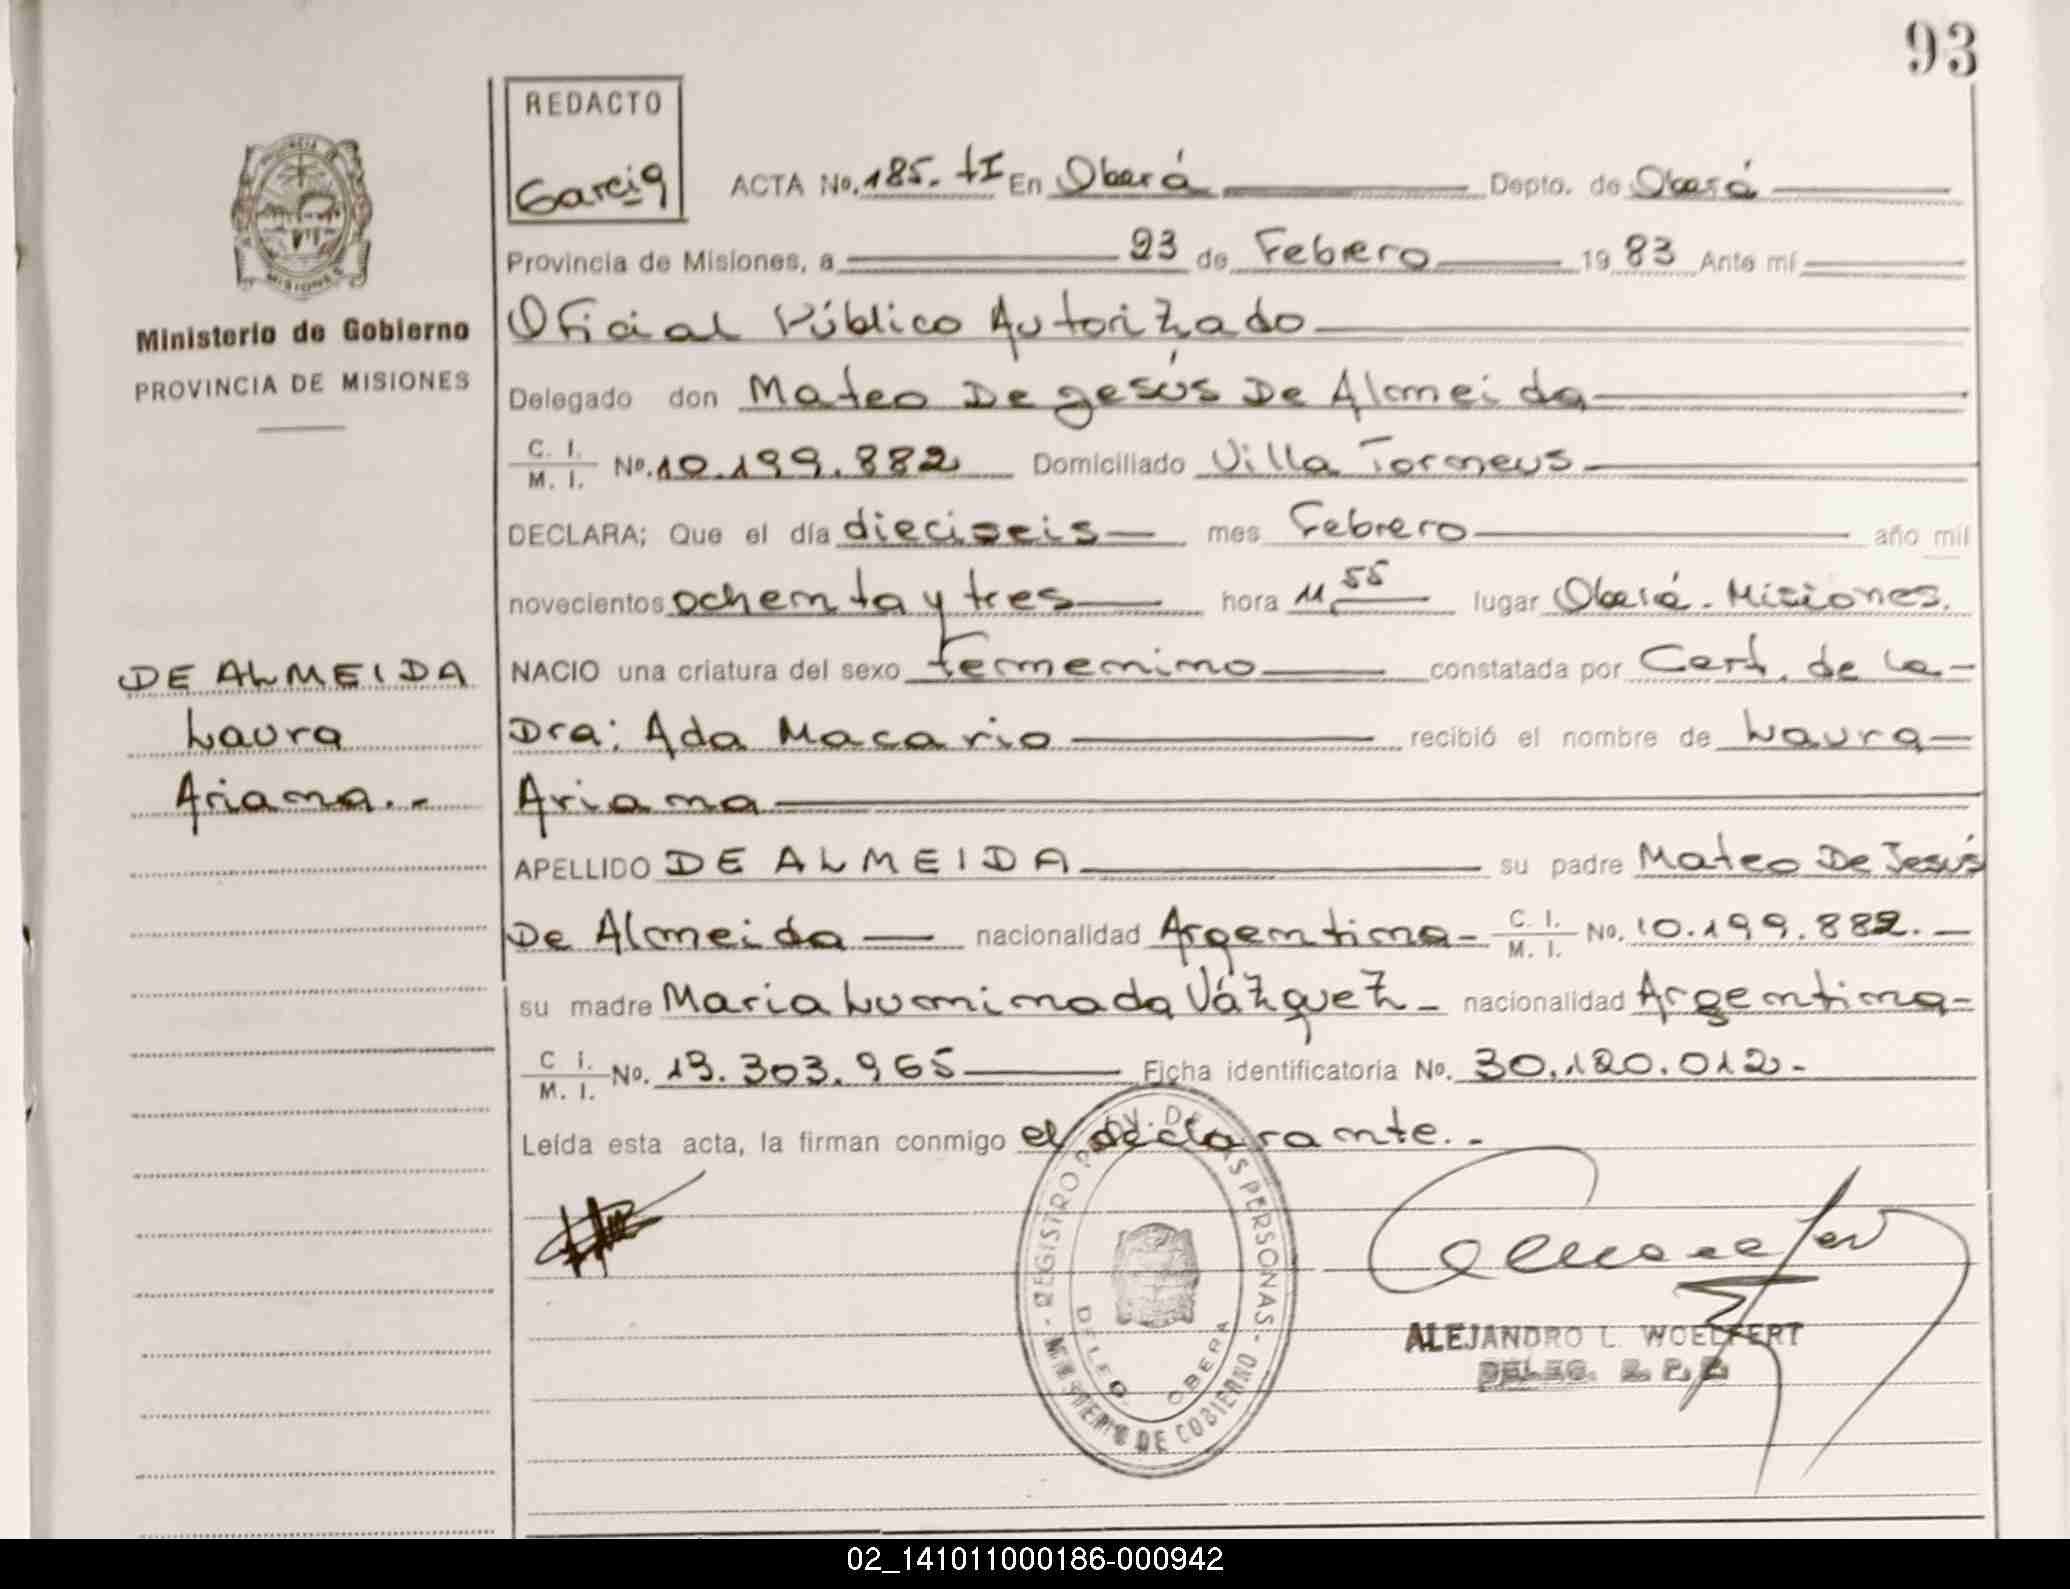 93
REDACTO
Garcia
ACTA No. 185. tI En Oberá Depto. de Oberá
Provincia de Misiones, a 23 de Febrero 1983 Ante mí
Oficial Público Autorizado
Ministerio de Gobierno
PROVINCIA DE MISIONES
Delegado don Mateo De gesús De Almeida
C. I. M. I. No. 10.199.882 Domiciliado Villa Torneus
DECLARA; Que el día dieciseis mes Febrero año mil
novecientos ochenta y tres hora 11,55 lugar Oberá - Misiones.
DE ALMEIDA
Laura
Ariana. -
NACIO una criatura del sexo femenino constatada por Cert. de la
Dra: Ada Macario recibió el nombre de Laura
Ariana
APELLIDO DE ALMEIDA su padre Mateo De Jesús
De Almeida nacionalidad Argentina - C. I. M. I. No. 10.199.882. -
su madre Maria Luminada Vázquez - nacionalidad Argentina -
C I. M. I. No. 13.303.965 Ficha identificatoria No. 30.120.012 -
Leída esta acta, la firman conmigo el declarante. -
REGISTRO PROV. DE LAS PERSONAS - MINISTERIO DE GOBIERNO
DELEG. OBERA
ALEJANDRO L. WOELFERT
DELEG. R. P. P.
02_141011000186-000942